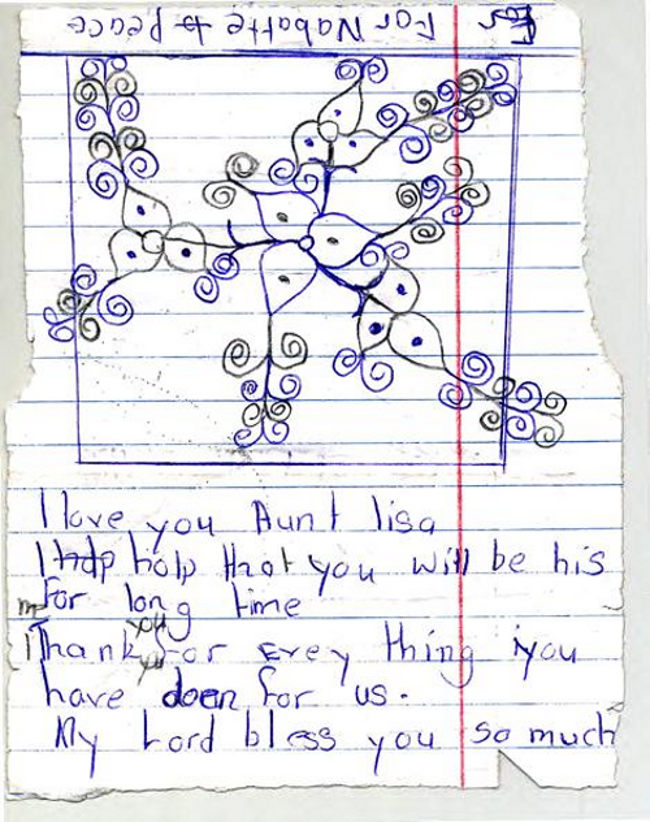 For Nabatte to peace
I love you Aunt lisa
I holp that you will be his
for long time
Thank you for Evey thing you
have doen for us.
My Lord bless you so much